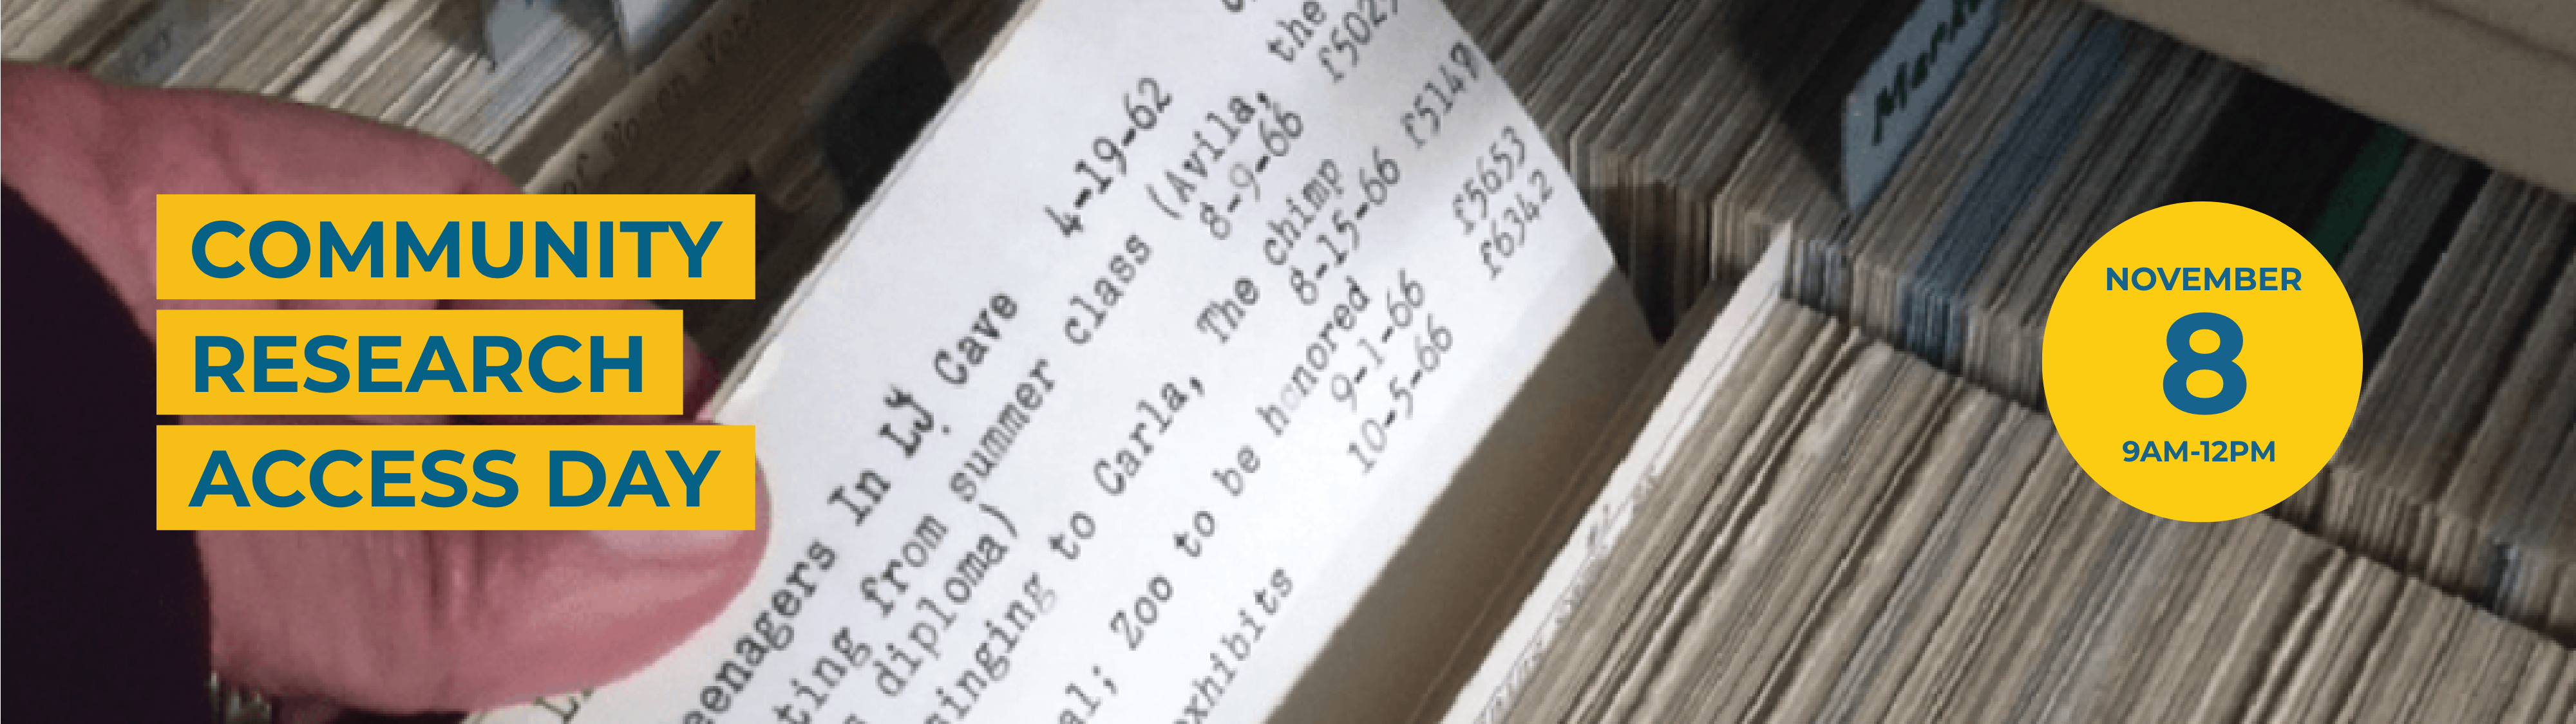 COMMUNITY
RESEARCH
ACCESS DAY
NOVEMBER
8
9AM-12PM
eenagers In LJ Cave 4-19-62
ting from summer class (Avila, the
diploma) 8-9-66 f502
singing to Carla, The chimp
8-15-66 f5149
al; Zoo to be honored
9-1-66 f5653
10-5-66 f6342
exhibits